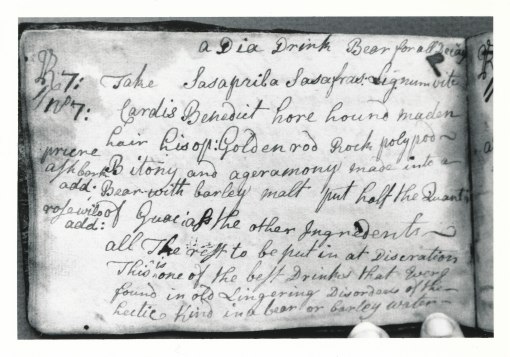 a Dia Drink Bear for all Deing
R 7: Take Sasaprilba Sasafras Lignumvite
No 7: Cardis Benedict hore hound maden
hair hisop: Golden rod Rock polypod
priene
ash bark
add. Bitony and ageramony made into a
Bear with barley malt put half the Quanti
rosewilo
add: of Guaci as the other Ingredents
all The rest to be put in at Discration
This is one of the best Drinks that Ever
found in old Lingering Disordors of the
hectic Kind in a bear or barley water